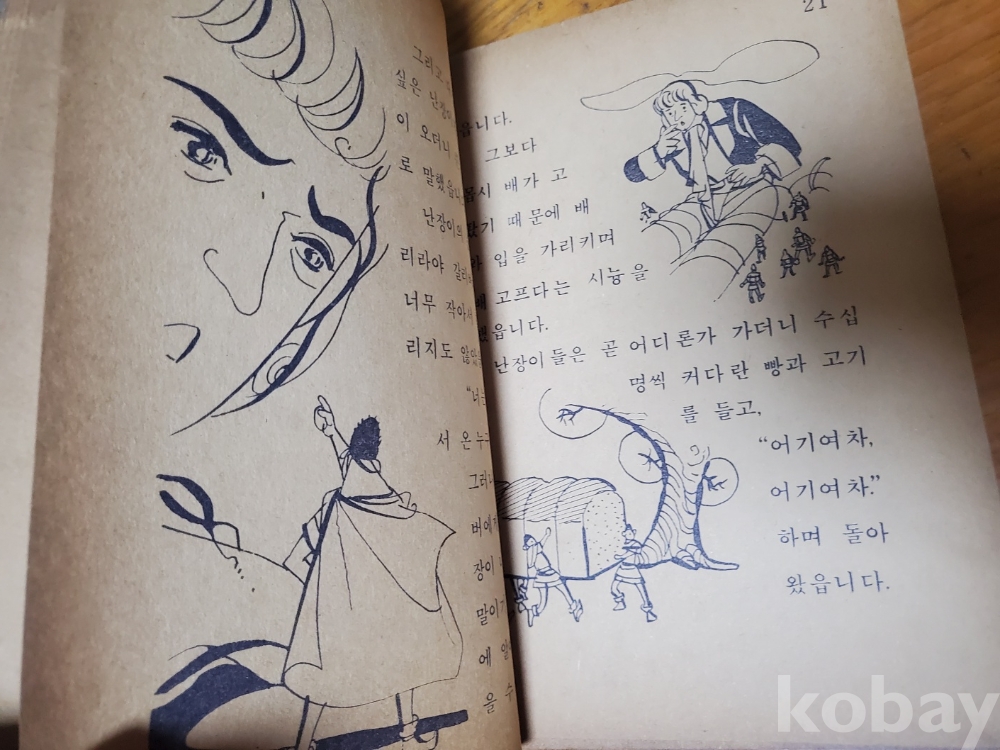 그리고
싶은 난장이
이 오더니
로 말했읍니
난장이의
리라야
너무 작아서
리지도
“너는
서 온
장이
에
을 수
21
읍니다.
그보다
몹시 배가 고
팠기 때문에 배
입을 가리키며
고프다는 시늉을
했읍니다.
난장이들은 곧 어디론가 가더니 수십
명씩 커다란 빵과 고기
를 들고,
“어기여차,
어기여차.”
하며 돌아
왔읍니다.
kobay